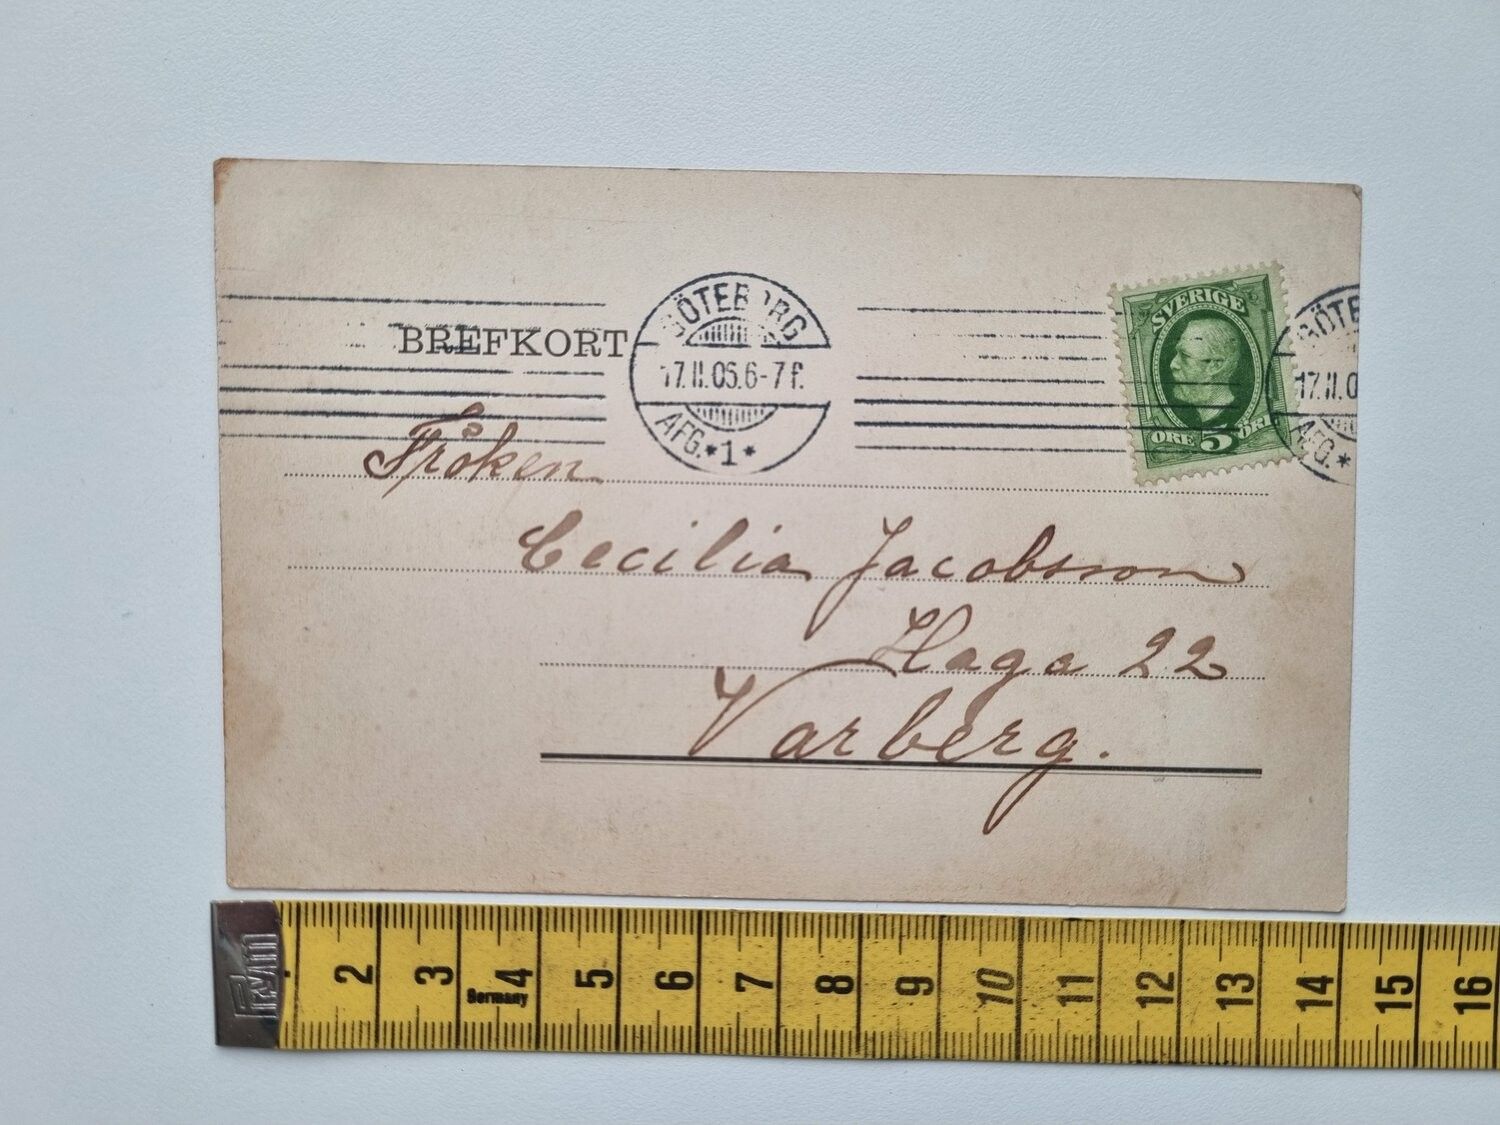 BREFKORT
GÖTEBORG
17.II.05.6-7 f.
AFG.*1*
SVERIGE
ÖRE 5 ÖRE
GÖTE
17.II.0
AFG.*
Fröken
Cecilia Jacobsson
Haga 22
Varberg.
2 3 4 5 6 7 8 9 10 11 12 13 14 15 16
Germany